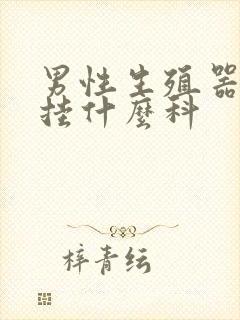 男性生殖器
挂什麼科
梓青纭